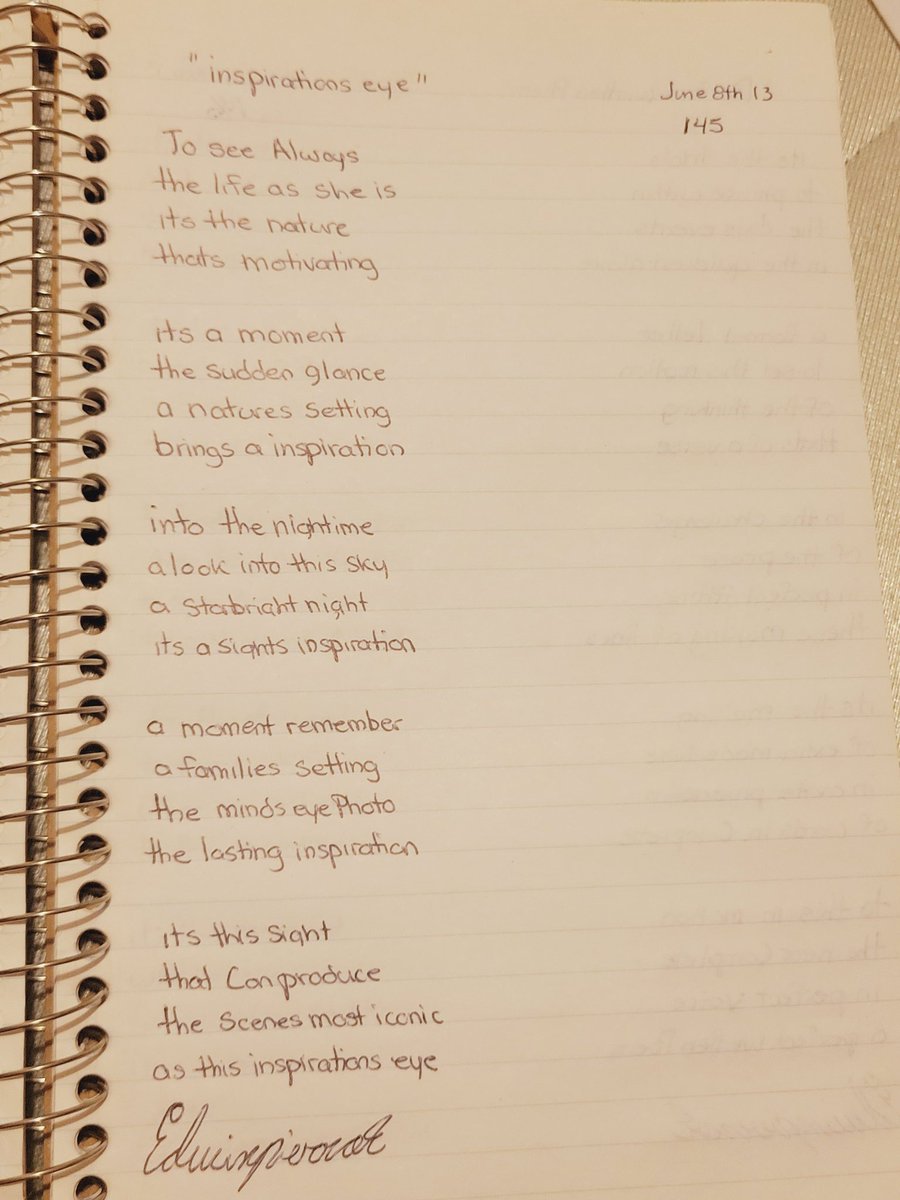 "inspirations eye"
June 8th 13
145
To see Always
the life as she is
its the nature
thats motivating
its a moment
the sudden glance
a natures setting
brings a inspiration
into the nightime
a look into this sky
a starbright night
its a sights inspiration
a moment remember
a families setting
the minds eye Photo
the lasting inspiration
its this sight
that Can produce
the scenes most iconic
as this inspirations eye